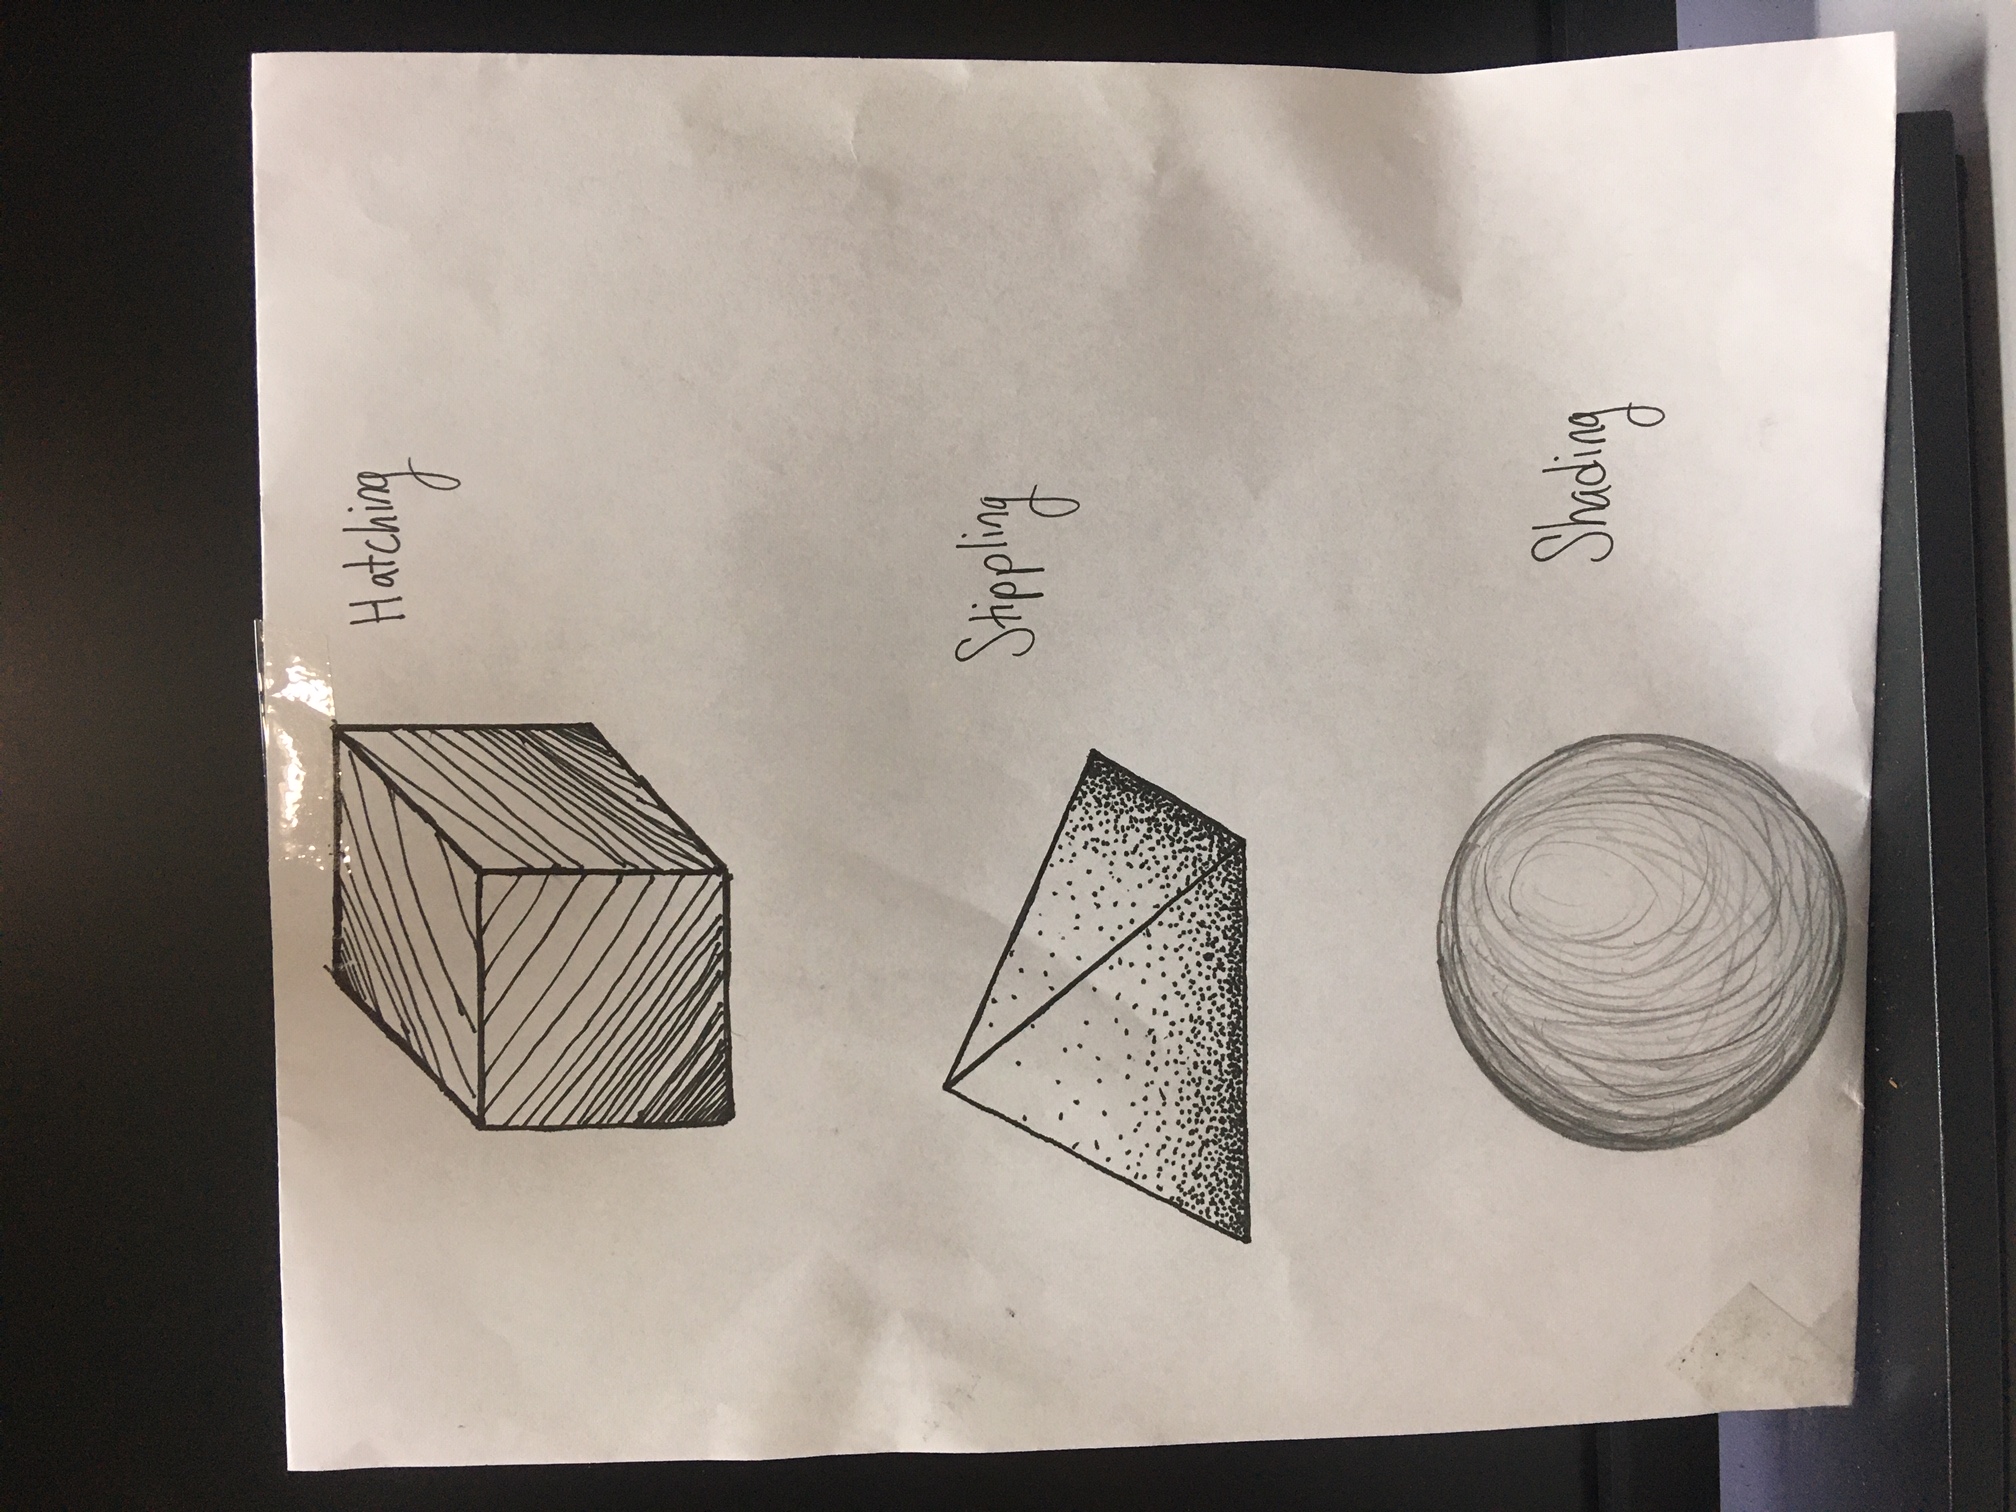 Hatching
Stippling
Shading